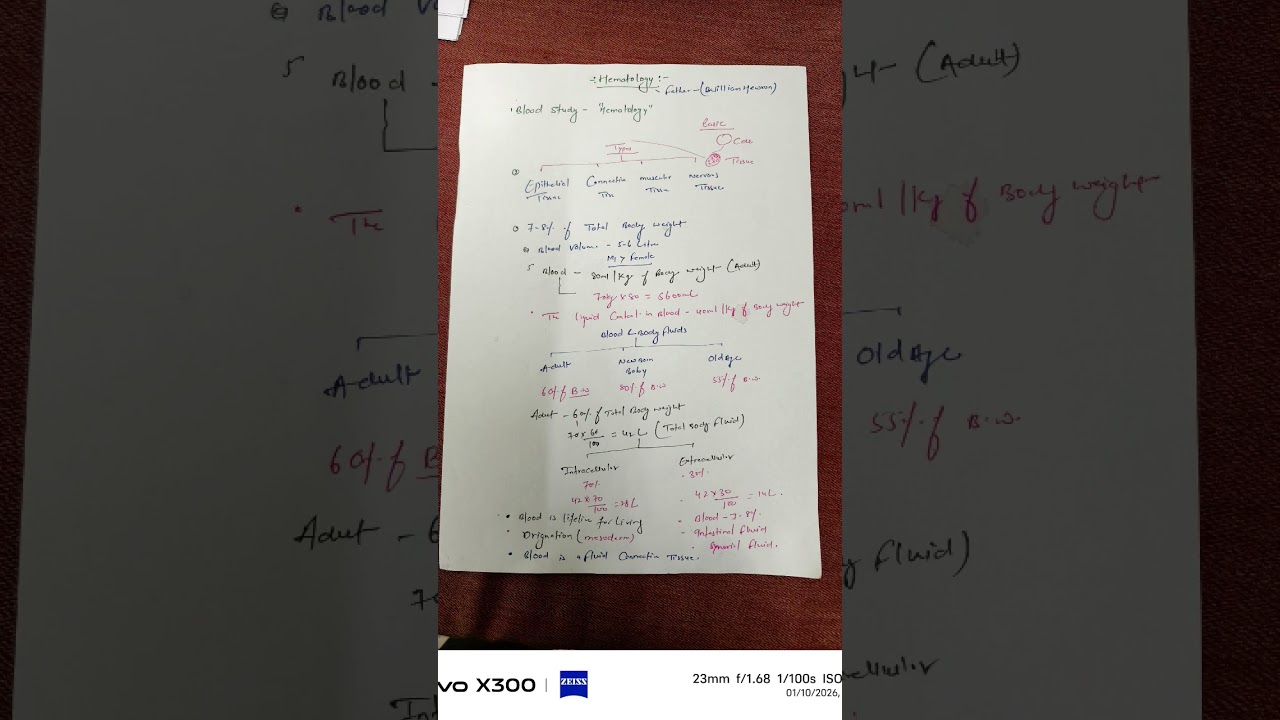 -: Hematology :-
Father - (William Hewson)
Blood study - "Hematology"
Basic
Cell
Tissue
Types
Epithelial Connective muscular nervous
Tissue Tiss Tissue Tissue
7-8% of Total Body weight
Blood Volume - 5-6 Litre
M > Female
Blood - 80ml/Kg of Body weight (Adult)
70kg x 80 = 5600mL
The liquid Contet in Blood - 40ml/Kg of Body weight
Blood & Body fluids
Adult Newborn Old Age
Baby
60% of B.W 80% of B.W 55% of B.W.
Adult - 60% of Total Body weight
70 x 60/100 = 42L (Total Body fluid)
Intracellular Extracellular
70% 30%
42 x 70/100 = 28L 42 x 30/100 = 14L.
Blood is lifeline for living
Blood - 7-8%
Orignation (mesoderm)
fluid
Blood is a fluid Connective Tissue.
fluid.
vo X300 | ZEISS
23mm f/1.68 1/100s ISO
01/10/2026,